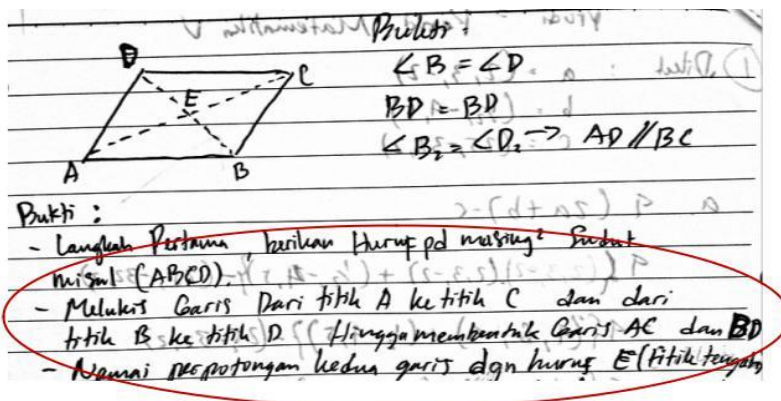 Bukti :
D
C
E
A
B
∠B = ∠D
BD = BD
∠B₂ = ∠D₂ → AD // BC
Bukti :
- Langkah Pertama, berikan Huruf pd masing² Sudut
misal (ABCD).
- Melukis Garis Dari titik A ke titik C dan dari
titik B ke titik D. Hingga membentuk Garis AC dan BD
- Namai perpotongan kedua garis dgn huruf E (titik tengah)